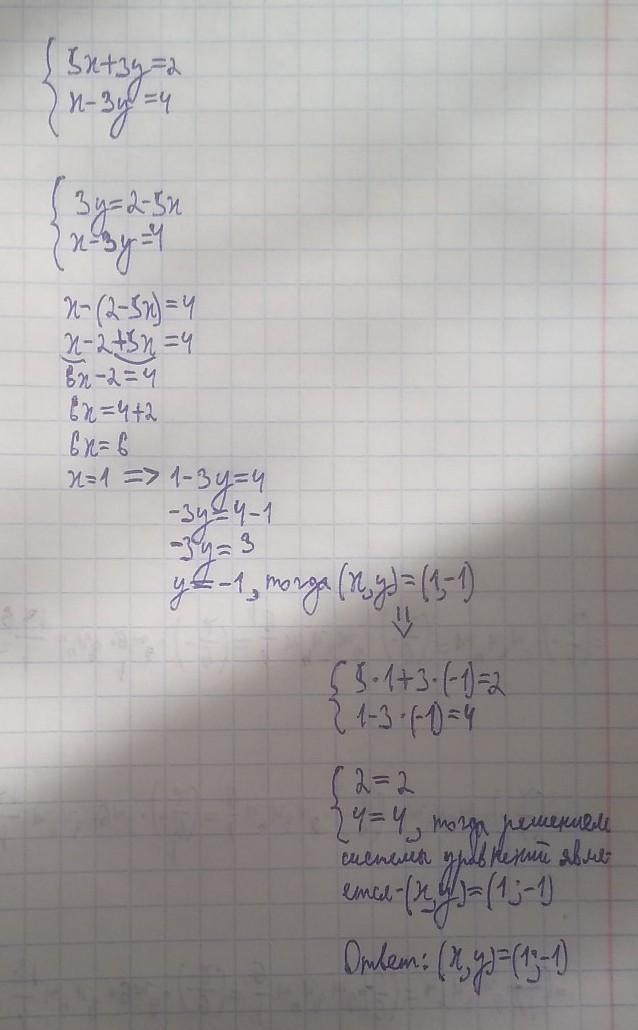 5x+3y=2
x-3y=4
3y=2-5x
x-3y=4
x-(2-5x)=4
x-2+5x=4
6x-2=4
6x=4+2
6x=6
x=1 => 1-3y=4
-3y=4-1
-3y=3
y=-1, тогда (x,y)=(1,-1)
⇓
5·1+3·(-1)=2
1-3·(-1)=4
2=2
4=4, тогда решением
системы уравнений явля-
ется-(x,y)=(1;-1)
Ответ: (x,y)=(1;-1)